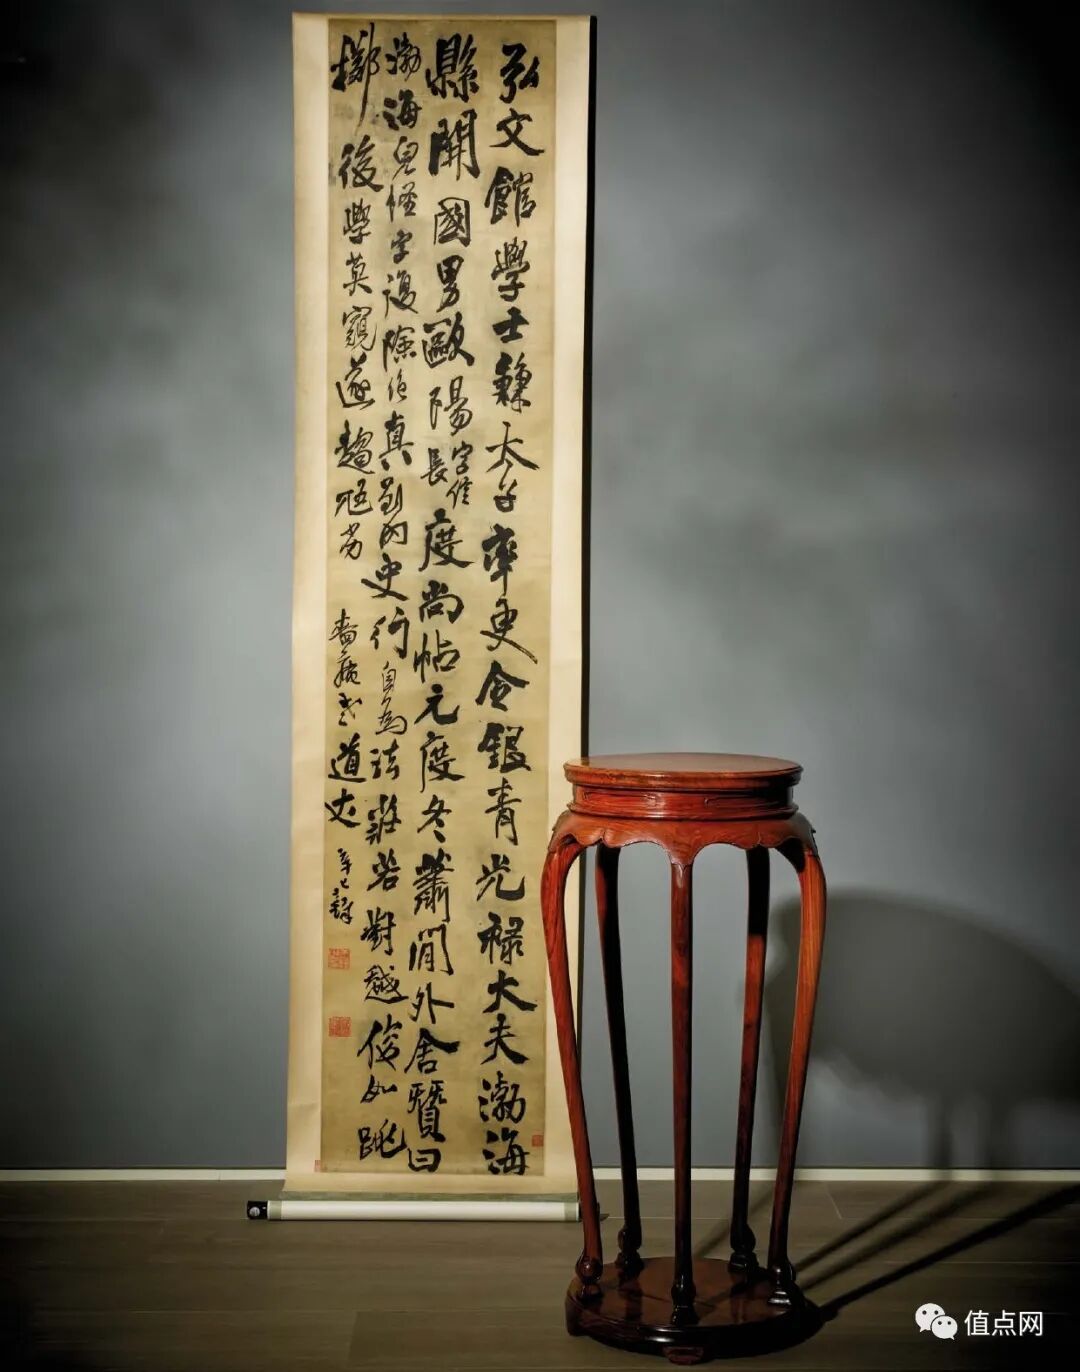 弘文館學士兼太子率更令銀青光祿大夫渤海
縣開國男歐陽字信長度尚帖元度冬蕭閒外舍贊曰
渤海皃怪字復險絕真到內史行自為法莊若對越俊如跳
擲後學莫窺遂趨尪劣 道丈 辛巳鐸
值点网